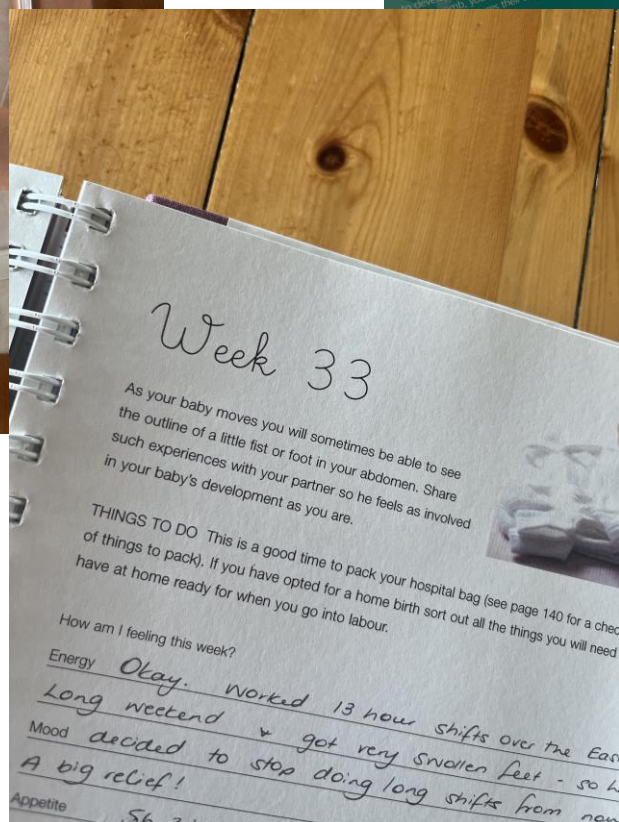 Week 33
As your baby moves you will sometimes be able to see
the outline of a little fist or foot in your abdomen. Share
such experiences with your partner so he feels as involved
in your baby's development as you are.
THINGS TO DO This is a good time to pack your hospital bag (see page 140 for a chec
of things to pack). If you have opted for a home birth sort out all the things you will need
have at home ready for when you go into labour.
How am I feeling this week?
Energy Okay. Worked 13 hour shifts over the Eas
Long weekend & got very swollen feet - so h
Mood decided to stop doing long shifts from now
A big relief!
Appetite